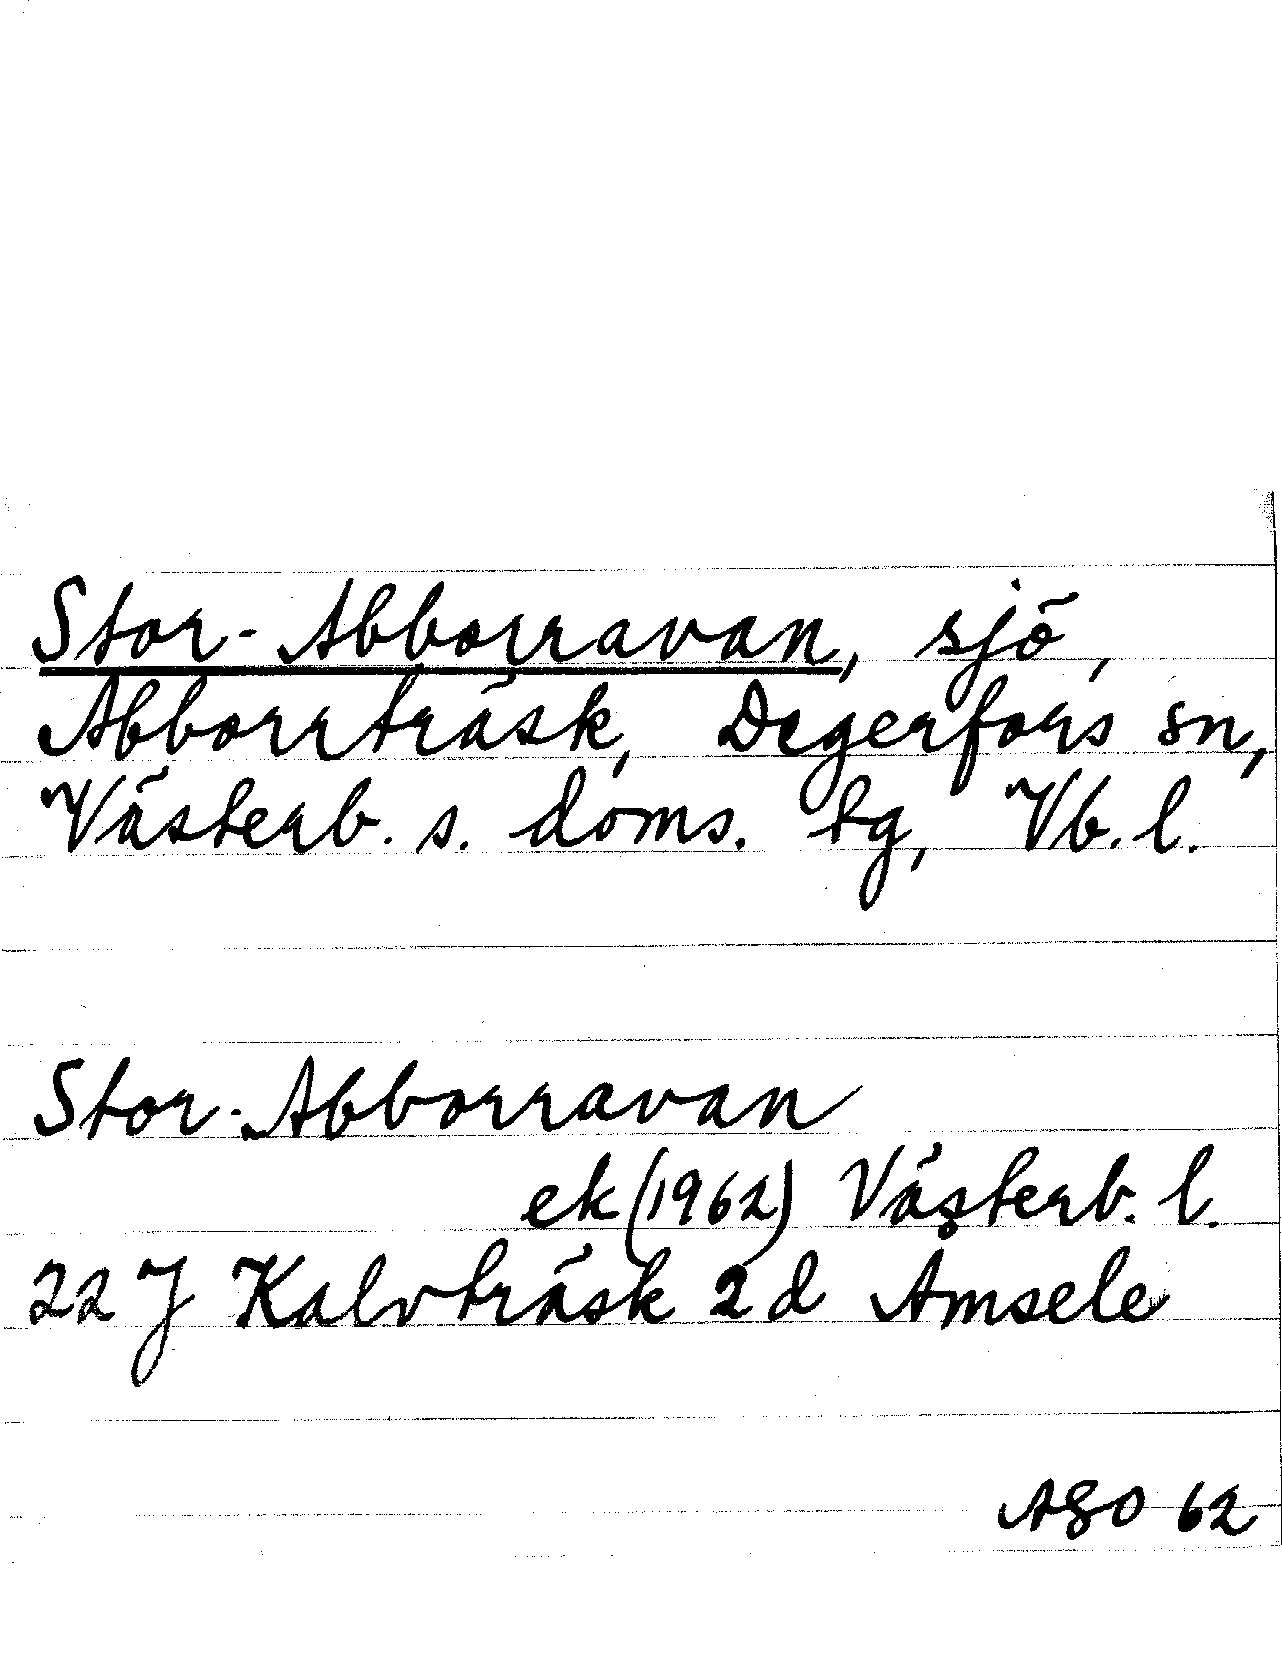 Stor-Abborravan, sjö,
Abborrträsk, Degerfors sn,
Västerb. s. doms. tg, Vb. l.
Stor-Abborravan
ek (1962) Västerb. l.
22 J Kalvträsk 2 d Amsele
ASO 62